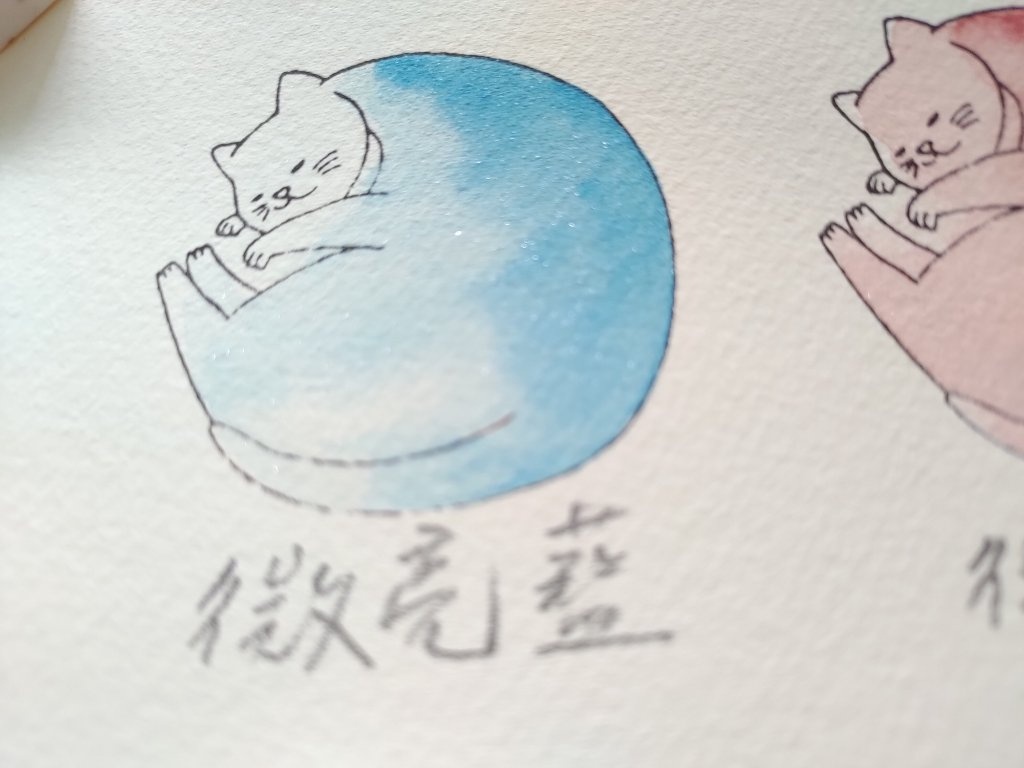 微亮藍